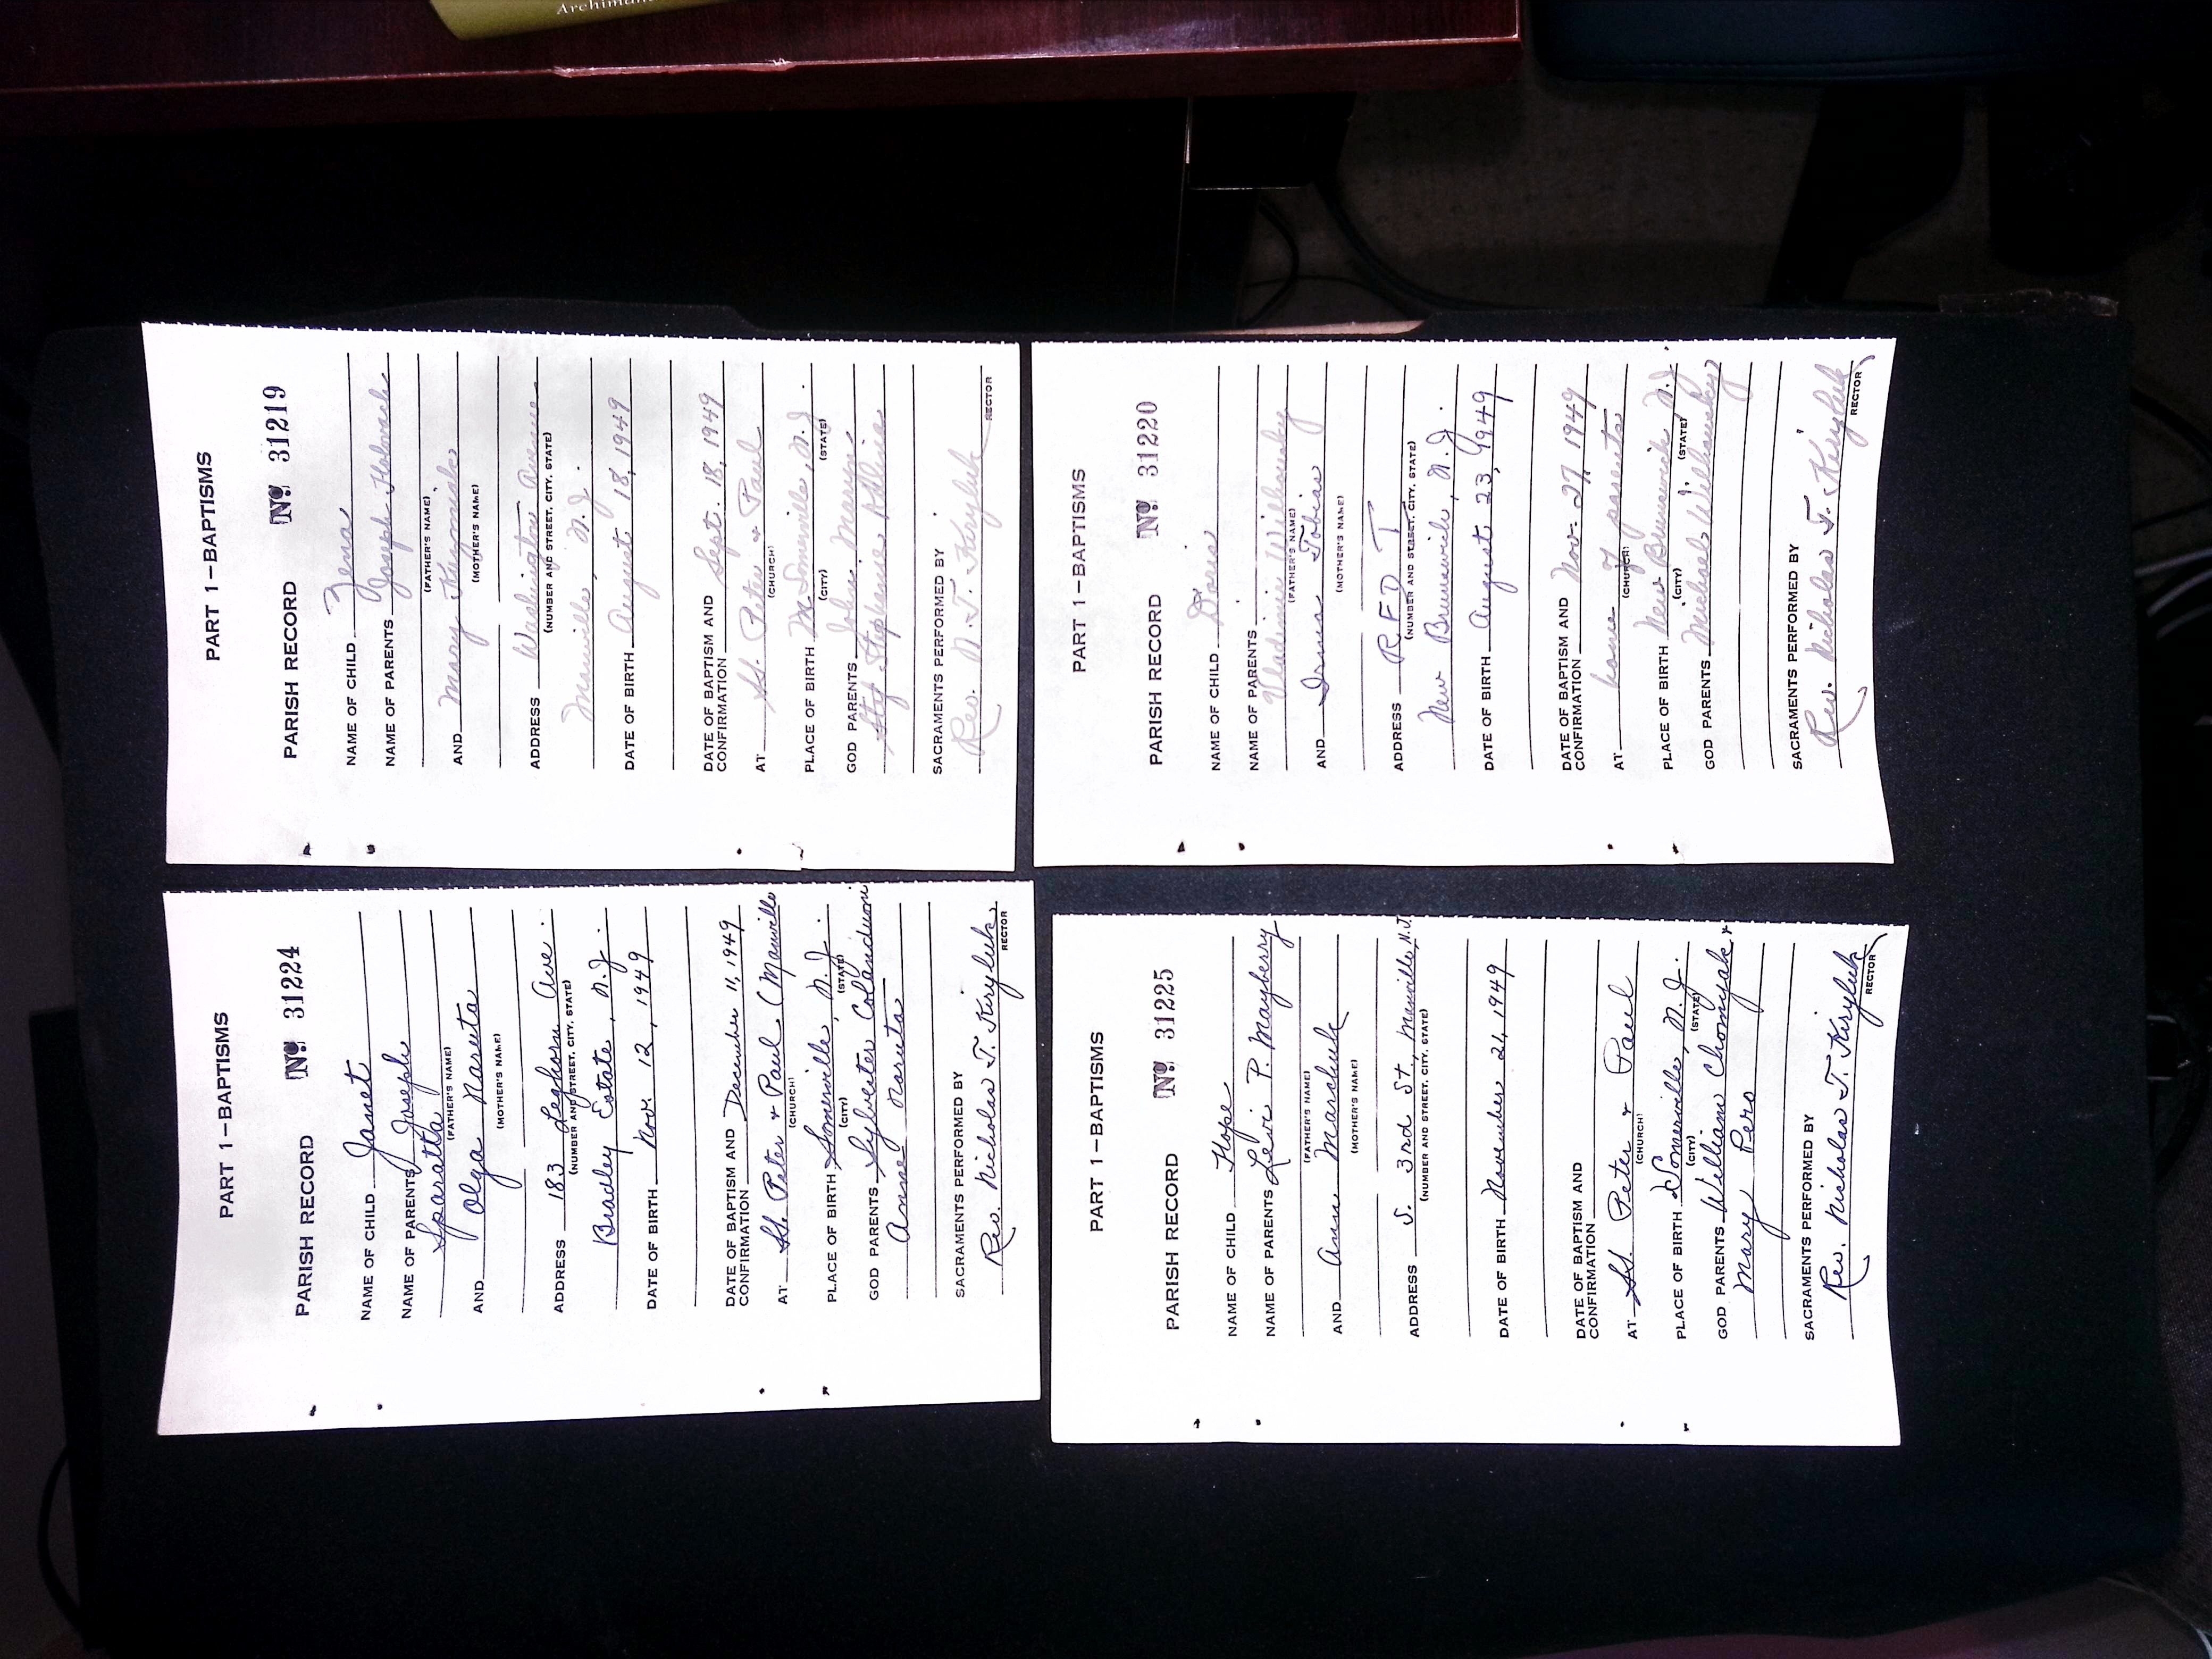 PART 1—BAPTISMS
PARISH RECORD No. 31224
NAME OF CHILD Janet
NAME OF PARENTS Joseph
Sparatta
(FATHER'S NAME)
AND Olga Naruta
(MOTHER'S NAME)
ADDRESS 183 Leghorn Ave.
(NUMBER AND STREET, CITY, STATE)
Bradley Estate, N.J.
DATE OF BIRTH Nov. 12, 1949
DATE OF BAPTISM AND
CONFIRMATION December 11, 1949
AT SS. Peter + Paul (Manville
(CHURCH)
PLACE OF BIRTH Somerville, N.J.
(CITY) (STATE)
GOD PARENTS Sylvester
Anne Naruta
SACRAMENTS PERFORMED BY
Rev. Nicholas T. Kiryluk
RECTOR
PART 1—BAPTISMS
PARISH RECORD No. 31219
NAME OF CHILD Zena
NAME OF PARENTS Joseph Holovach
(FATHER'S NAME)
AND Mary Kuzmiak
(MOTHER'S NAME)
ADDRESS Washington Avenue
(NUMBER AND STREET, CITY, STATE)
Manville, N.J.
DATE OF BIRTH August 18, 1949
DATE OF BAPTISM AND
CONFIRMATION Sept. 18, 1949
AT SS. Peter + Paul
(CHURCH)
PLACE OF BIRTH M Somerville, N.J.
(CITY) (STATE)
GOD PARENTS John Maryn
Stef Stephanie Kalina
SACRAMENTS PERFORMED BY
Rev. N. T. Kiryluk
RECTOR
PART 1—BAPTISMS
PARISH RECORD No. 31225
NAME OF CHILD Hope
NAME OF PARENTS Levi P. Mayberry
(FATHER'S NAME)
AND Ann Marchuk
(MOTHER'S NAME)
ADDRESS S. 3rd St., Manville, N.J.
(NUMBER AND STREET, CITY, STATE)
DATE OF BIRTH November 21, 1949
DATE OF BAPTISM AND
CONFIRMATION
AT SS. Peter + Paul
(CHURCH)
PLACE OF BIRTH Somerville, N.J.
(CITY) (STATE)
GOD PARENTS William Chomyak +
Mary Pero
SACRAMENTS PERFORMED BY
Rev. Nicholas T. Kiryluk
RECTOR
PART 1—BAPTISMS
PARISH RECORD No. 31220
NAME OF CHILD Doris
NAME OF PARENTS
Vladimir Wilhousky
(FATHER'S NAME)
AND Irma Tobias
(MOTHER'S NAME)
ADDRESS RFD I
(NUMBER AND STREET, CITY, STATE)
New Brunswick, N.J.
DATE OF BIRTH August 23, 1949
DATE OF BAPTISM AND
CONFIRMATION Nov. 27, 1949
AT home of parents
(CHURCH)
PLACE OF BIRTH New Brunswick, N.J.
(CITY) (STATE)
GOD PARENTS Michael Wilhousky
SACRAMENTS PERFORMED BY
Rev. Nicholas T. Kiryluk
RECTOR